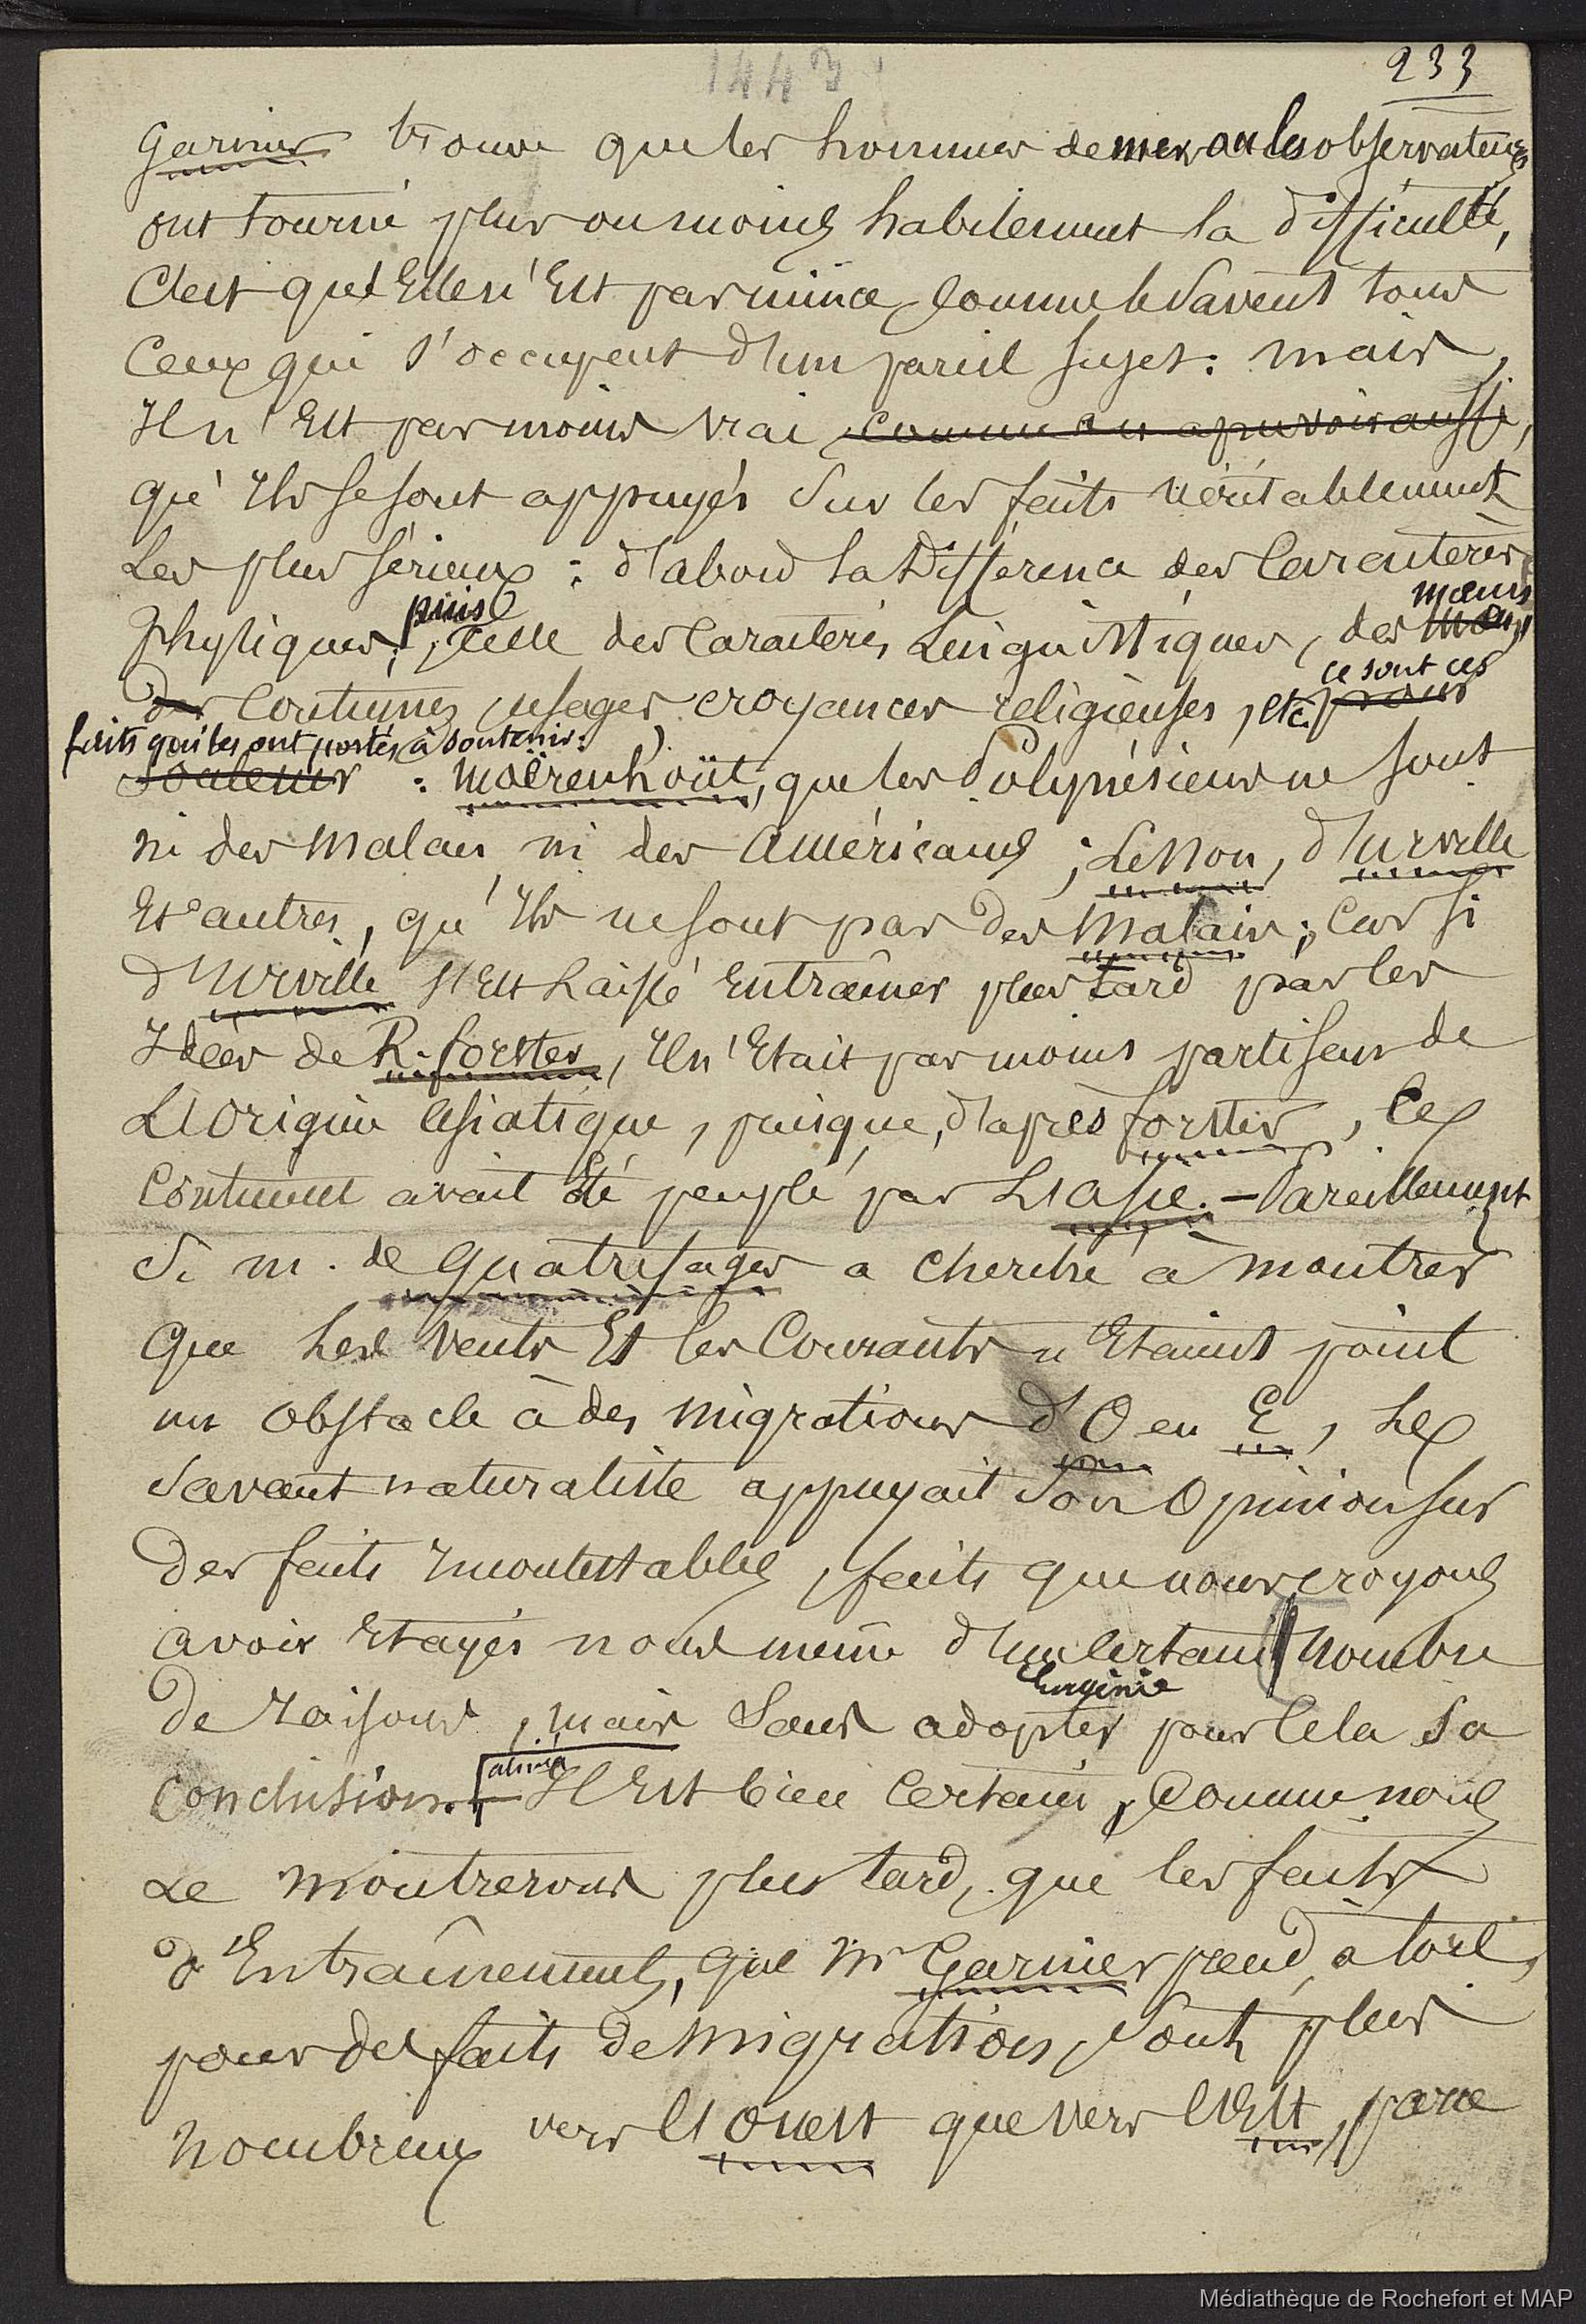 1443
233
Garnier trouve que les hommes de mer ou les observateurs
ont tourné plus ou moins habilement la difficulté,
C'est qu'Elle n'Est pas mince, Comme le Savent tous
Ceux qui s'occupent d'un pareil sujet : mais,
Il n'Est pas moins vrai comme on a pu voir aussi,
qu'Ils se sont appuyés Sur les faits véritablement
Les plus sérieux : d'abord la Différence des Caractères
mœurs
puis
Physiques, Celle des Caractères Linguistiques, des mœurs
ce sont ces
des Coutumes, usages, croyances religieuses, etc. pour
faits qui les ont portés à soutenir :
Soutenir : Moërenhoüt, que les Polynésiens ne sont
ni des Malais, ni des Américains ; Lesson, d'Urville
Et autres, qu'Ils ne sont pas des Malais ; Car si
d'Urville s'Est Laissé Entraîner plus tard par les
Idées de R. forster, Il n'Etait pas moins partisan de
L'Origine Asiatique, puisque, d'après forster, Ce
Continent avait Eté peuplé par L'Asie. — Pareillement
Si M. de Quatrefages a cherché à montrer
Que Les Vents Et les Courants n'Etaient point
un Obstacle à des migrations d'O en E, Le
Savant naturaliste appuyait Son Opinion sur
Des faits Incontestables, faits que nous croyons
avoir Etayés nous même d'un Certain nombre
De raisons, mais Sans adopter pour Cela Sa
Conclusion.
alinéa
Il Est bien Certain, Comme nous
Le montrerons plus tard, que les faits
d'Entraînements, que Mr Garnier prend, à tort,
pour des faits de migration, Sont plus
nombreux vers l'Ouest que vers l'Est, parce
Médiathèque de Rochefort et MAP